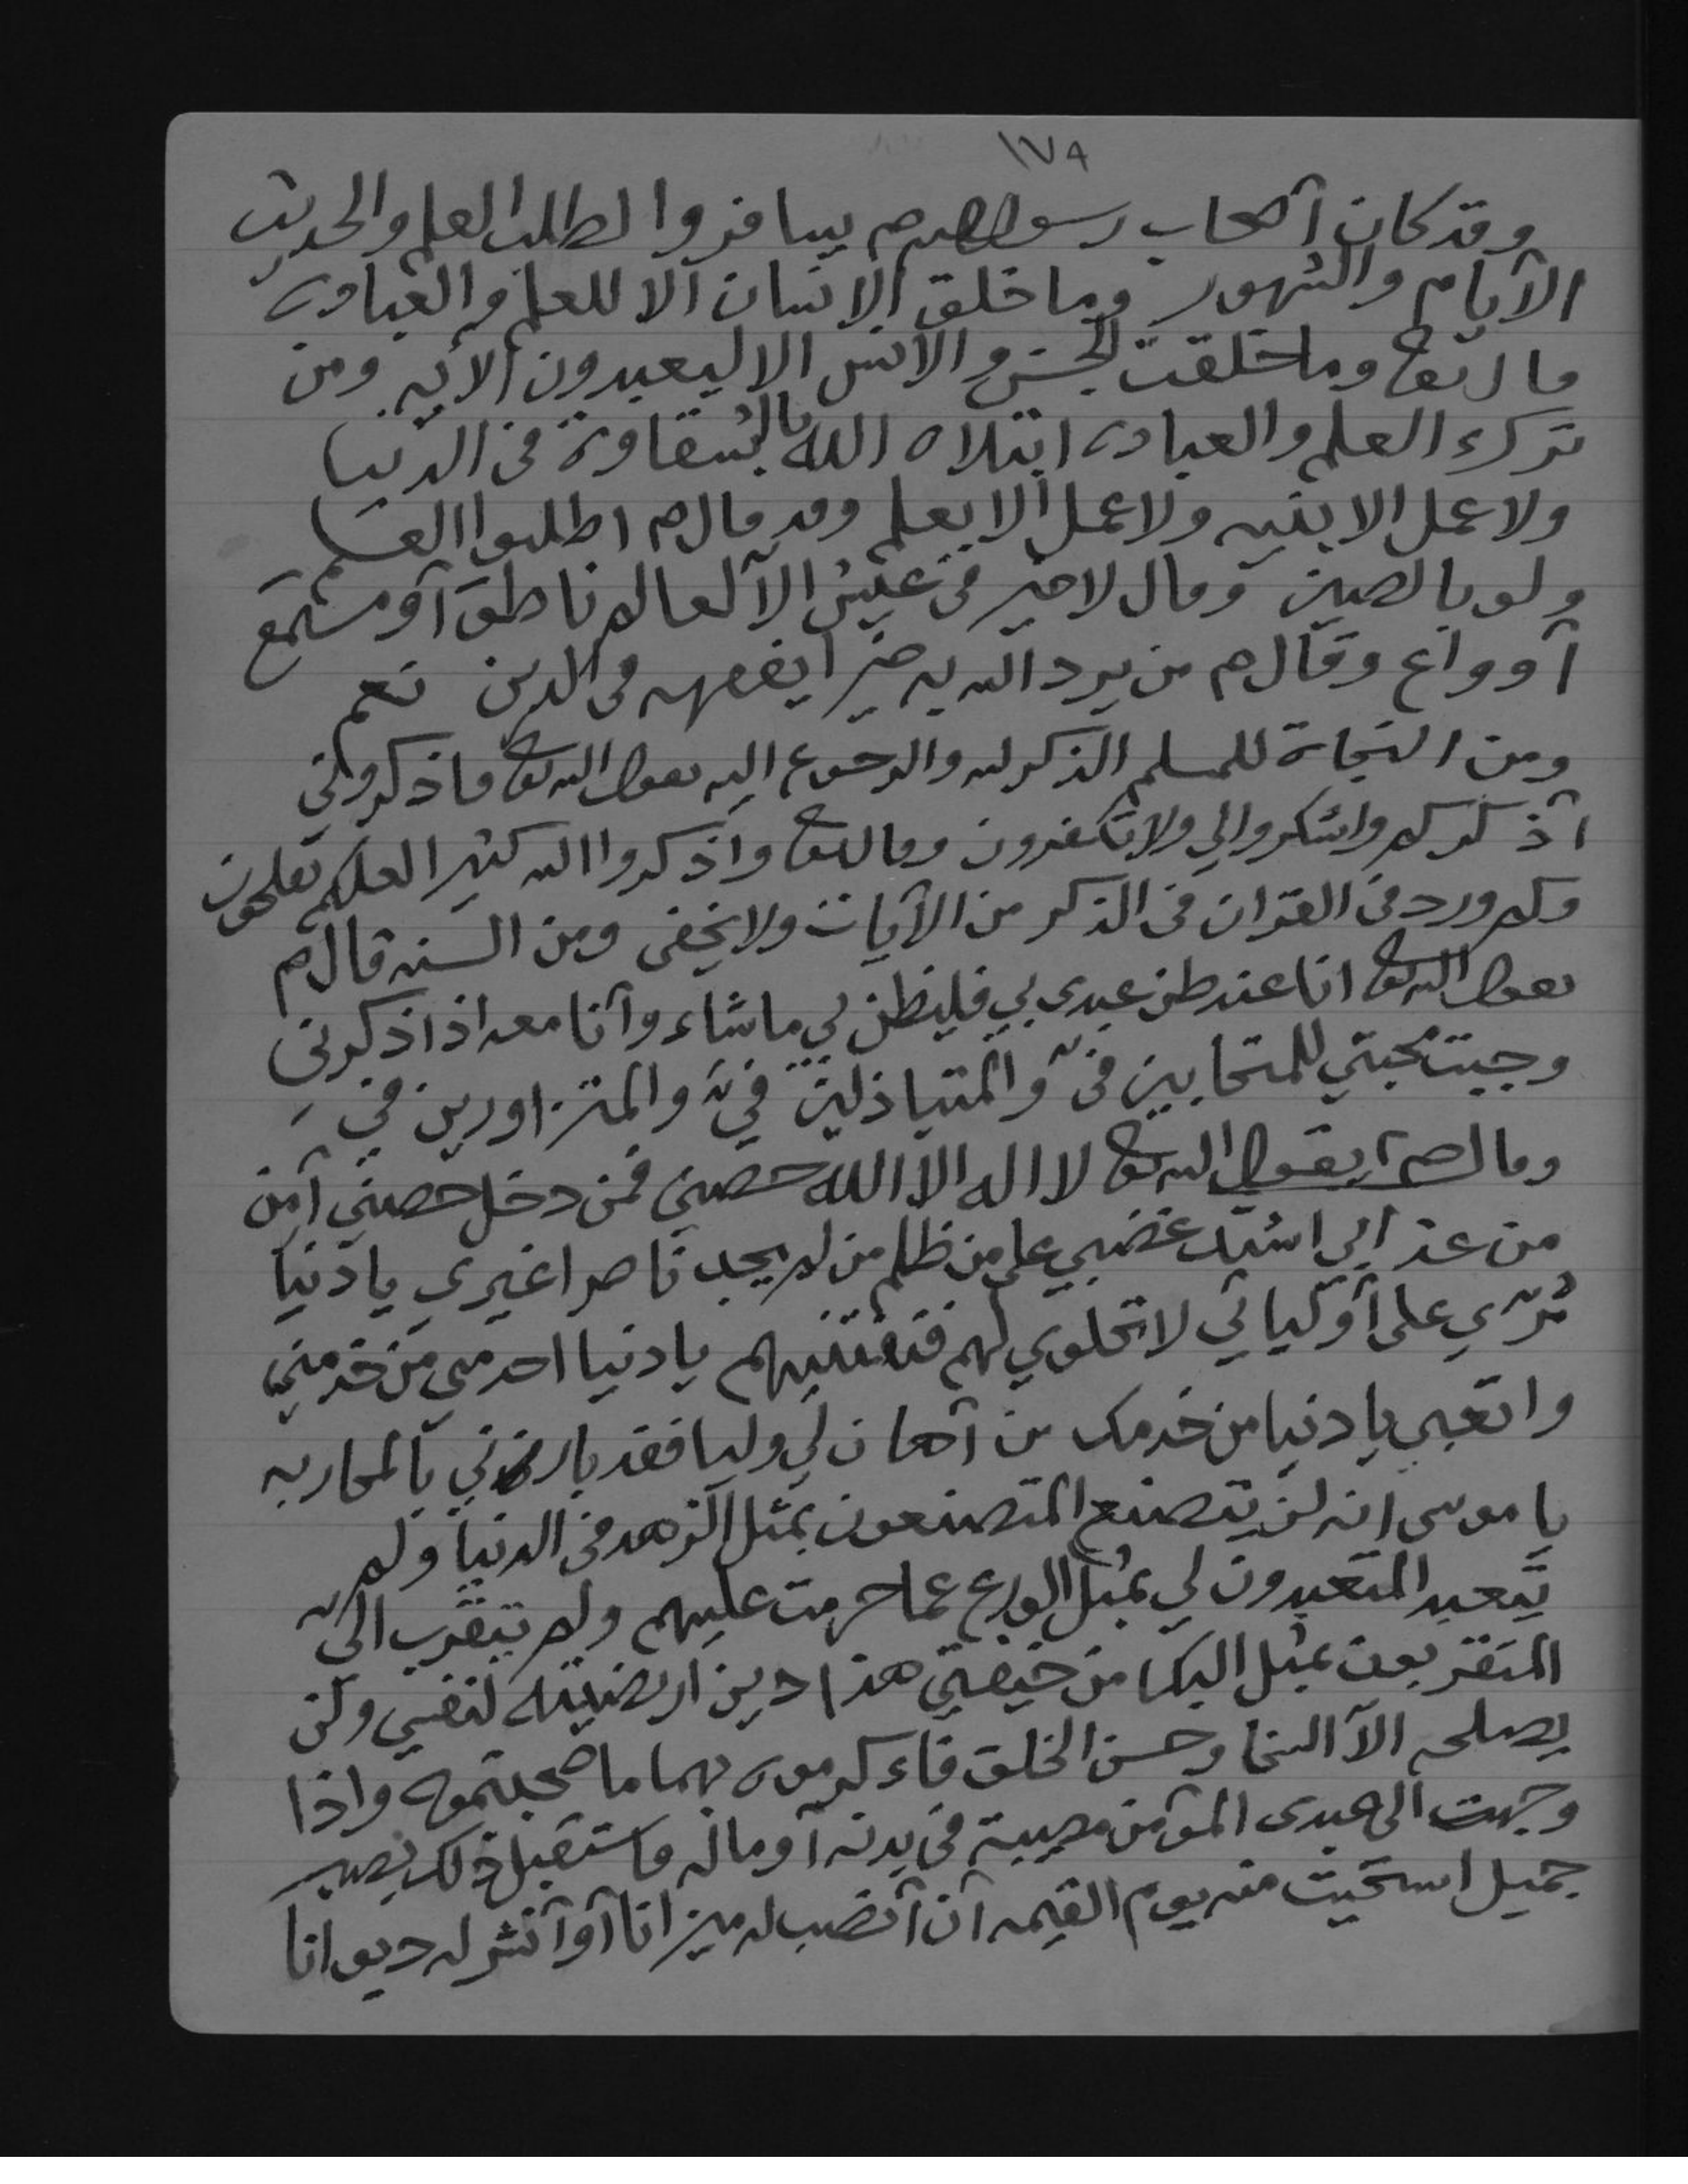 ١٧٩
وقد كان آصحاب رسول الله صم يسافروا لطلب العلم والحديث
الآيام والشهور وما خلق الإنسان آلا للعلم والعباده
قال تعا وما خلقت الجن والآنس الا ليعبدون الآيه ومن
ترك العلم والعباده ابتلاه الله بالشقاوة في الدنيا
ولا عمل الا بنيه ولا عمل الا بعلم وقد قال صم اطلبوا العلم
ولو بالصين وقال لا خير في عيش الآ لعالم ناطق آو مستمع
آو واع وقال صم من يرد الله به خيرا يفقهه في الدين نعم
ومن النجاة للمسلم الذكر لله والرجوع اليه يقول الله تعا فاذكروني
آذكركم واشكروا لي ولا تكفرون وقال تعا وآذكروا الله كثيرا لعلكم تفلحون
وكم ورد في القران في الذكر من الآيات ولا يخفى ومن السنه قال صم
يقول الله تعا انا عند ظن عبدي بي فليظن بي ما شاء وآنا معه اذا ذكرني
وجبت محبتي للمتحابين فيّ والمتباذلين فيّ والمتزاورين فيّ
وقال صم يقول الله تعا لا اله الا الله حصني فمن دخل حصني آمن
من عذابي اشتد غضبي على من ظلم من لم يجد ناصرا غيري يا دنيا
مُرّي على آوليائي لا تحلوي لهم فتفتنيهم يا دنيا اخدمي من خدمني
واتعبي يا دنيا من خدمك من آهان لي وليا فقد بارزني بالمحاربه
يا موسى انه لن يتصنع المتصنعون بمثل الزهد في الدنيا ولم
يتعبد المتعبدون لي بمثل الورع عما حرمت عليهم ولم يتقرب اليّ
المتقربون بمثل البكا من خيفتي هذا دين ارتضيته لنفسي ولن
يصلحه الآ السخا وحسن الخلق فاءكرموه بهما ما صحبتموه واذا
وجهت الى عبدي المؤمن مصيبة في بدنه آو ماله فاستقبل ذلك بصبر
جميل استحيت منه يوم القيمه آن آنصب له ميزانا آو آنشر له ديوانا